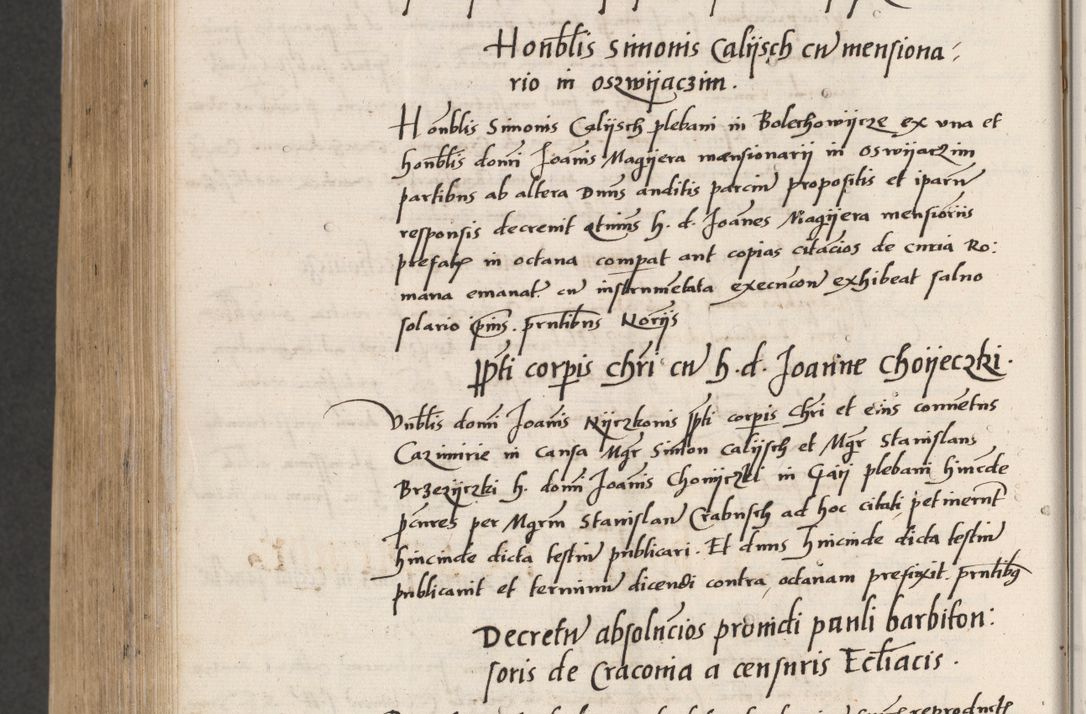 Honb̃lis Simonis Calijsch cũ mensiona-
rio in oszwijaczim.
Honb̃lis Simonis Calijsch plebani in Bolechowijcze ex vna et
honb̃lis domi Joañis Magijera mansionarij in oswijaczim
partibus ab altera Dnus auditis parciũ propositis et iparũ
responsis decrevit qtinus h. d. Joañes Magijera mensioñis
prefatꝫ in octaua compat aut copias citãcios de curia Ro:
mana emanat. cũ instrumẽtata execucion̄ exhibeat saluo
solario ipius. prñtibus Notrijs
pp̃ti corpis chr̃i cũ h. d. Joanne Choijeczki.
Vnb̃lis domi Joañis Nijczkonis pp̃ti corpis chr̃i et eius conuetus
Cazimirie in causa Mgr̃ Simon Calijsch et Mgr̃ Stanislaus
Brzezijczki h. domi Joañis Choijeczki in Gaij plebani hincde
pcures per Mgrm̃ Stanislaũ Crabusch ad hoc citati petinerũt
hincinde dicta testiũ publicari. Et dnus hincinde dicta testiũ
publicauit et terminũ dicendi contra, octauam prefixit. prñtibꝫ
Decretũ absolucĩos prouidi pauli barbiton:
soris de Cracouia a censuris Eccl̃iacis.